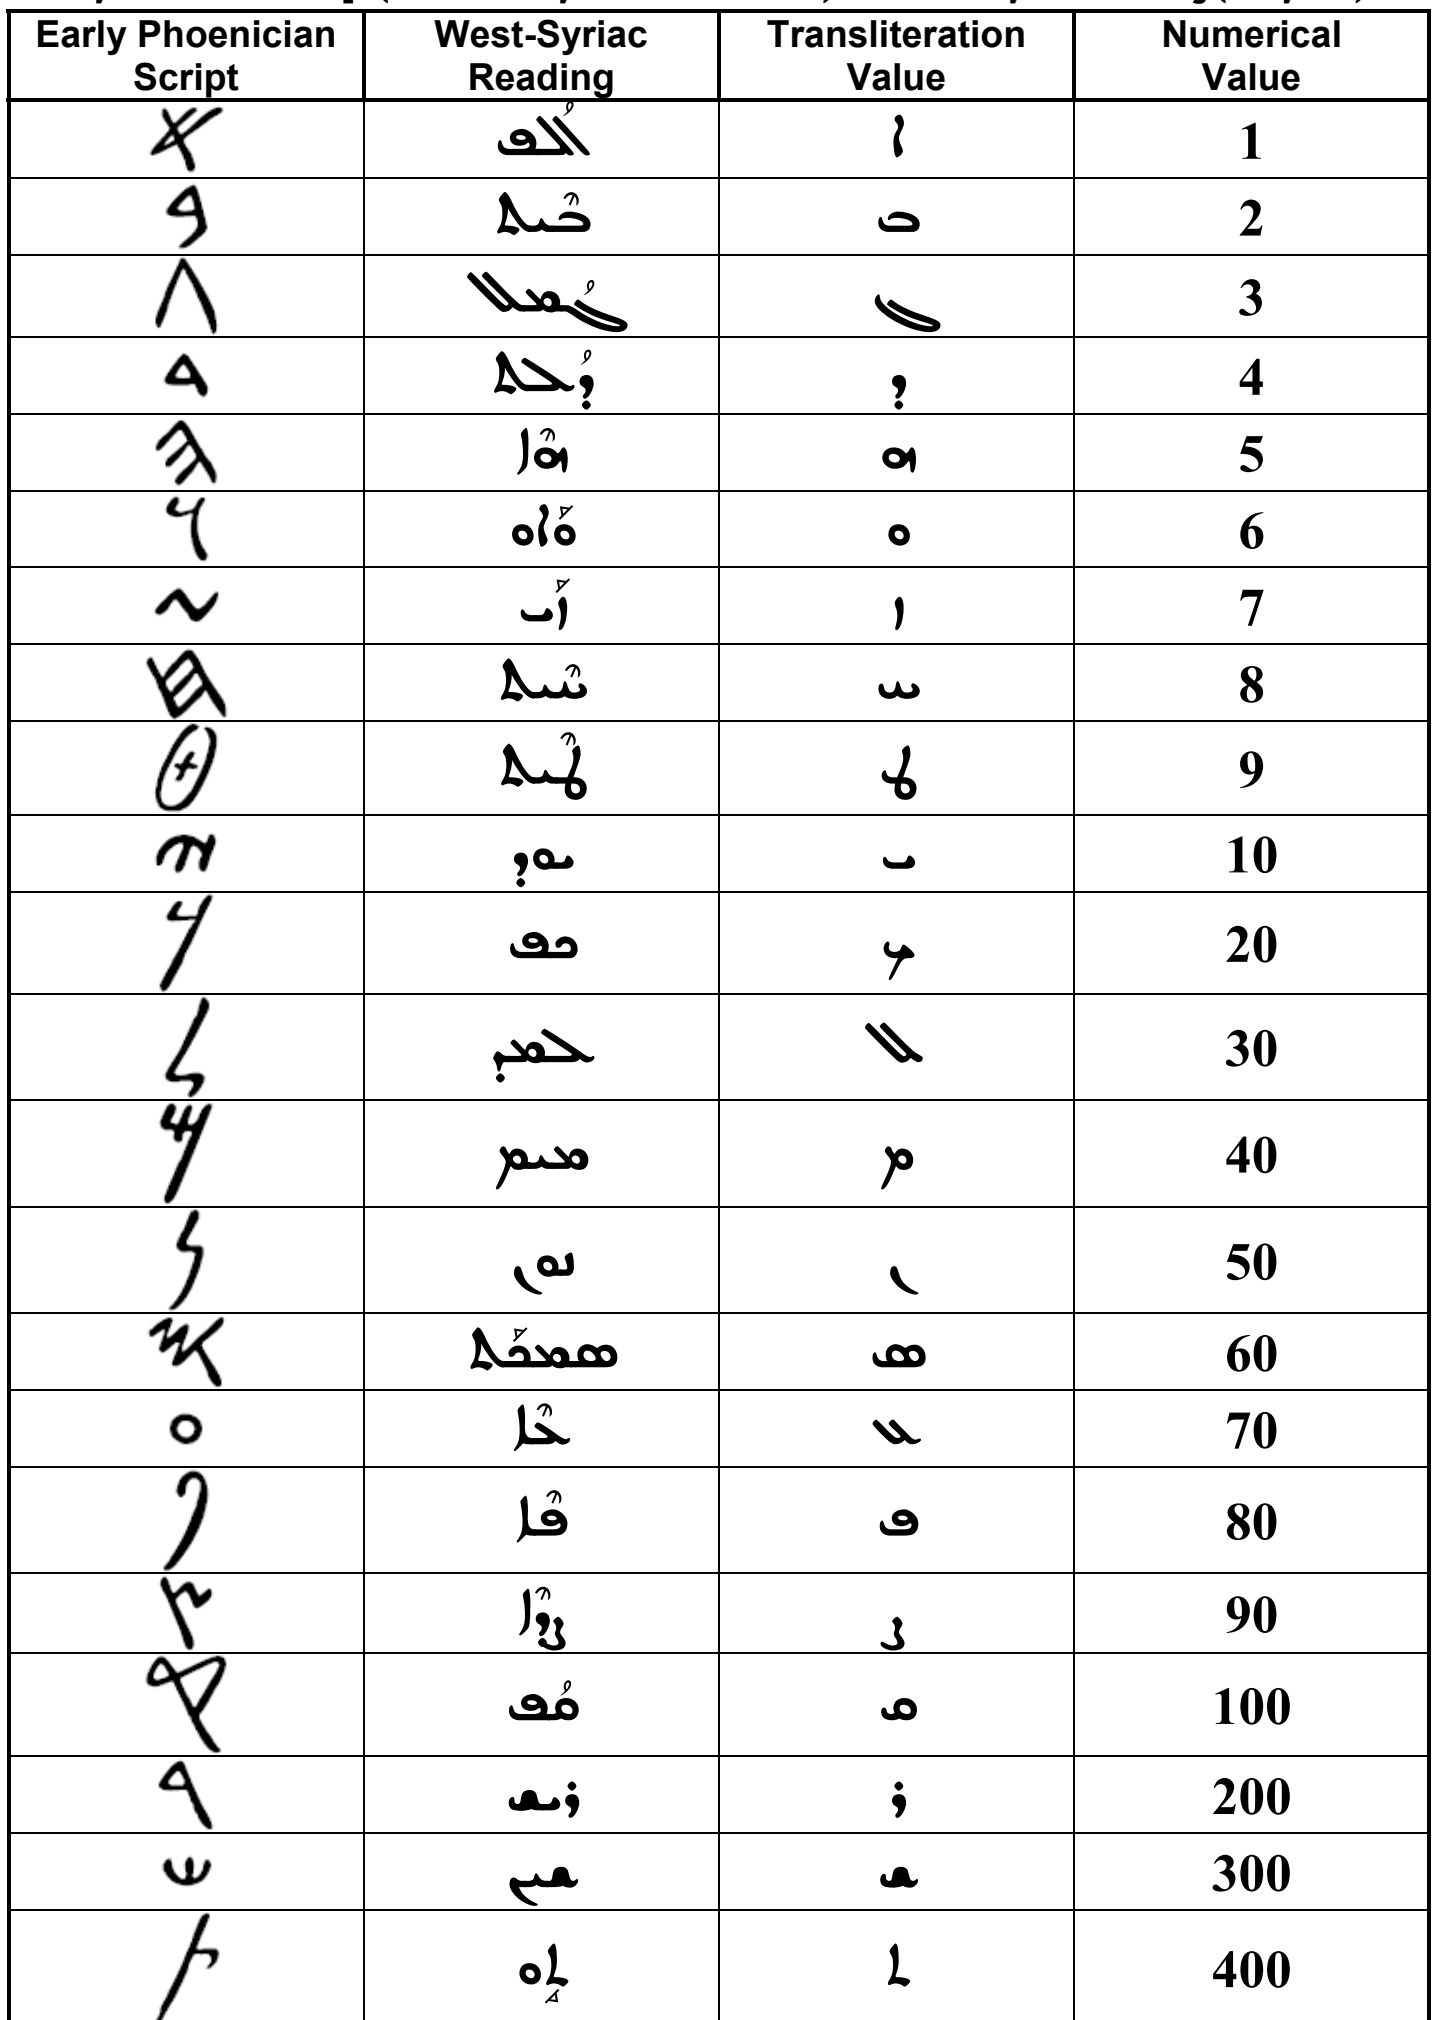 Early Phoenician Script West-Syriac Reading Transliteration Value Numerical Value
𐤀 ܐܳܠܦ ܐ 1
𐤁 ܒܶܝܬ ܒ 2
𐤂 ܓܳܡܠ ܓ 3
𐤃 ܕܳܠܬ ܕ 4
𐤄 ܗܶܐ ܗ 5
𐤅 ܘܰܐܘ ܘ 6
𐤆 ܙܰܝ ܙ 7
𐤇 ܚܶܝܬ ܚ 8
𐤈 ܛܶܝܬ ܛ 9
𐤉 ܝܘܕ ܝ 10
𐤊 ܟܦ ܟ 20
𐤋 ܠܡܕ ܠ 30
𐤌 ܡܝܡ ܡ 40
𐤍 ܢܘܢ ܢ 50
𐤎 ܣܡܟܰܬ ܣ 60
𐤏 ܥܶܐ ܥ 70
𐤐 ܦܶܐ ܦ 80
𐤑 ܨܕܶܐ ܨ 90
𐤒 ܩܳܦ ܩ 100
𐤓 ܪܝܫ ܪ 200
𐤔 ܫܝܢ ܫ 300
𐤕 ܬܱܘ ܬ 400